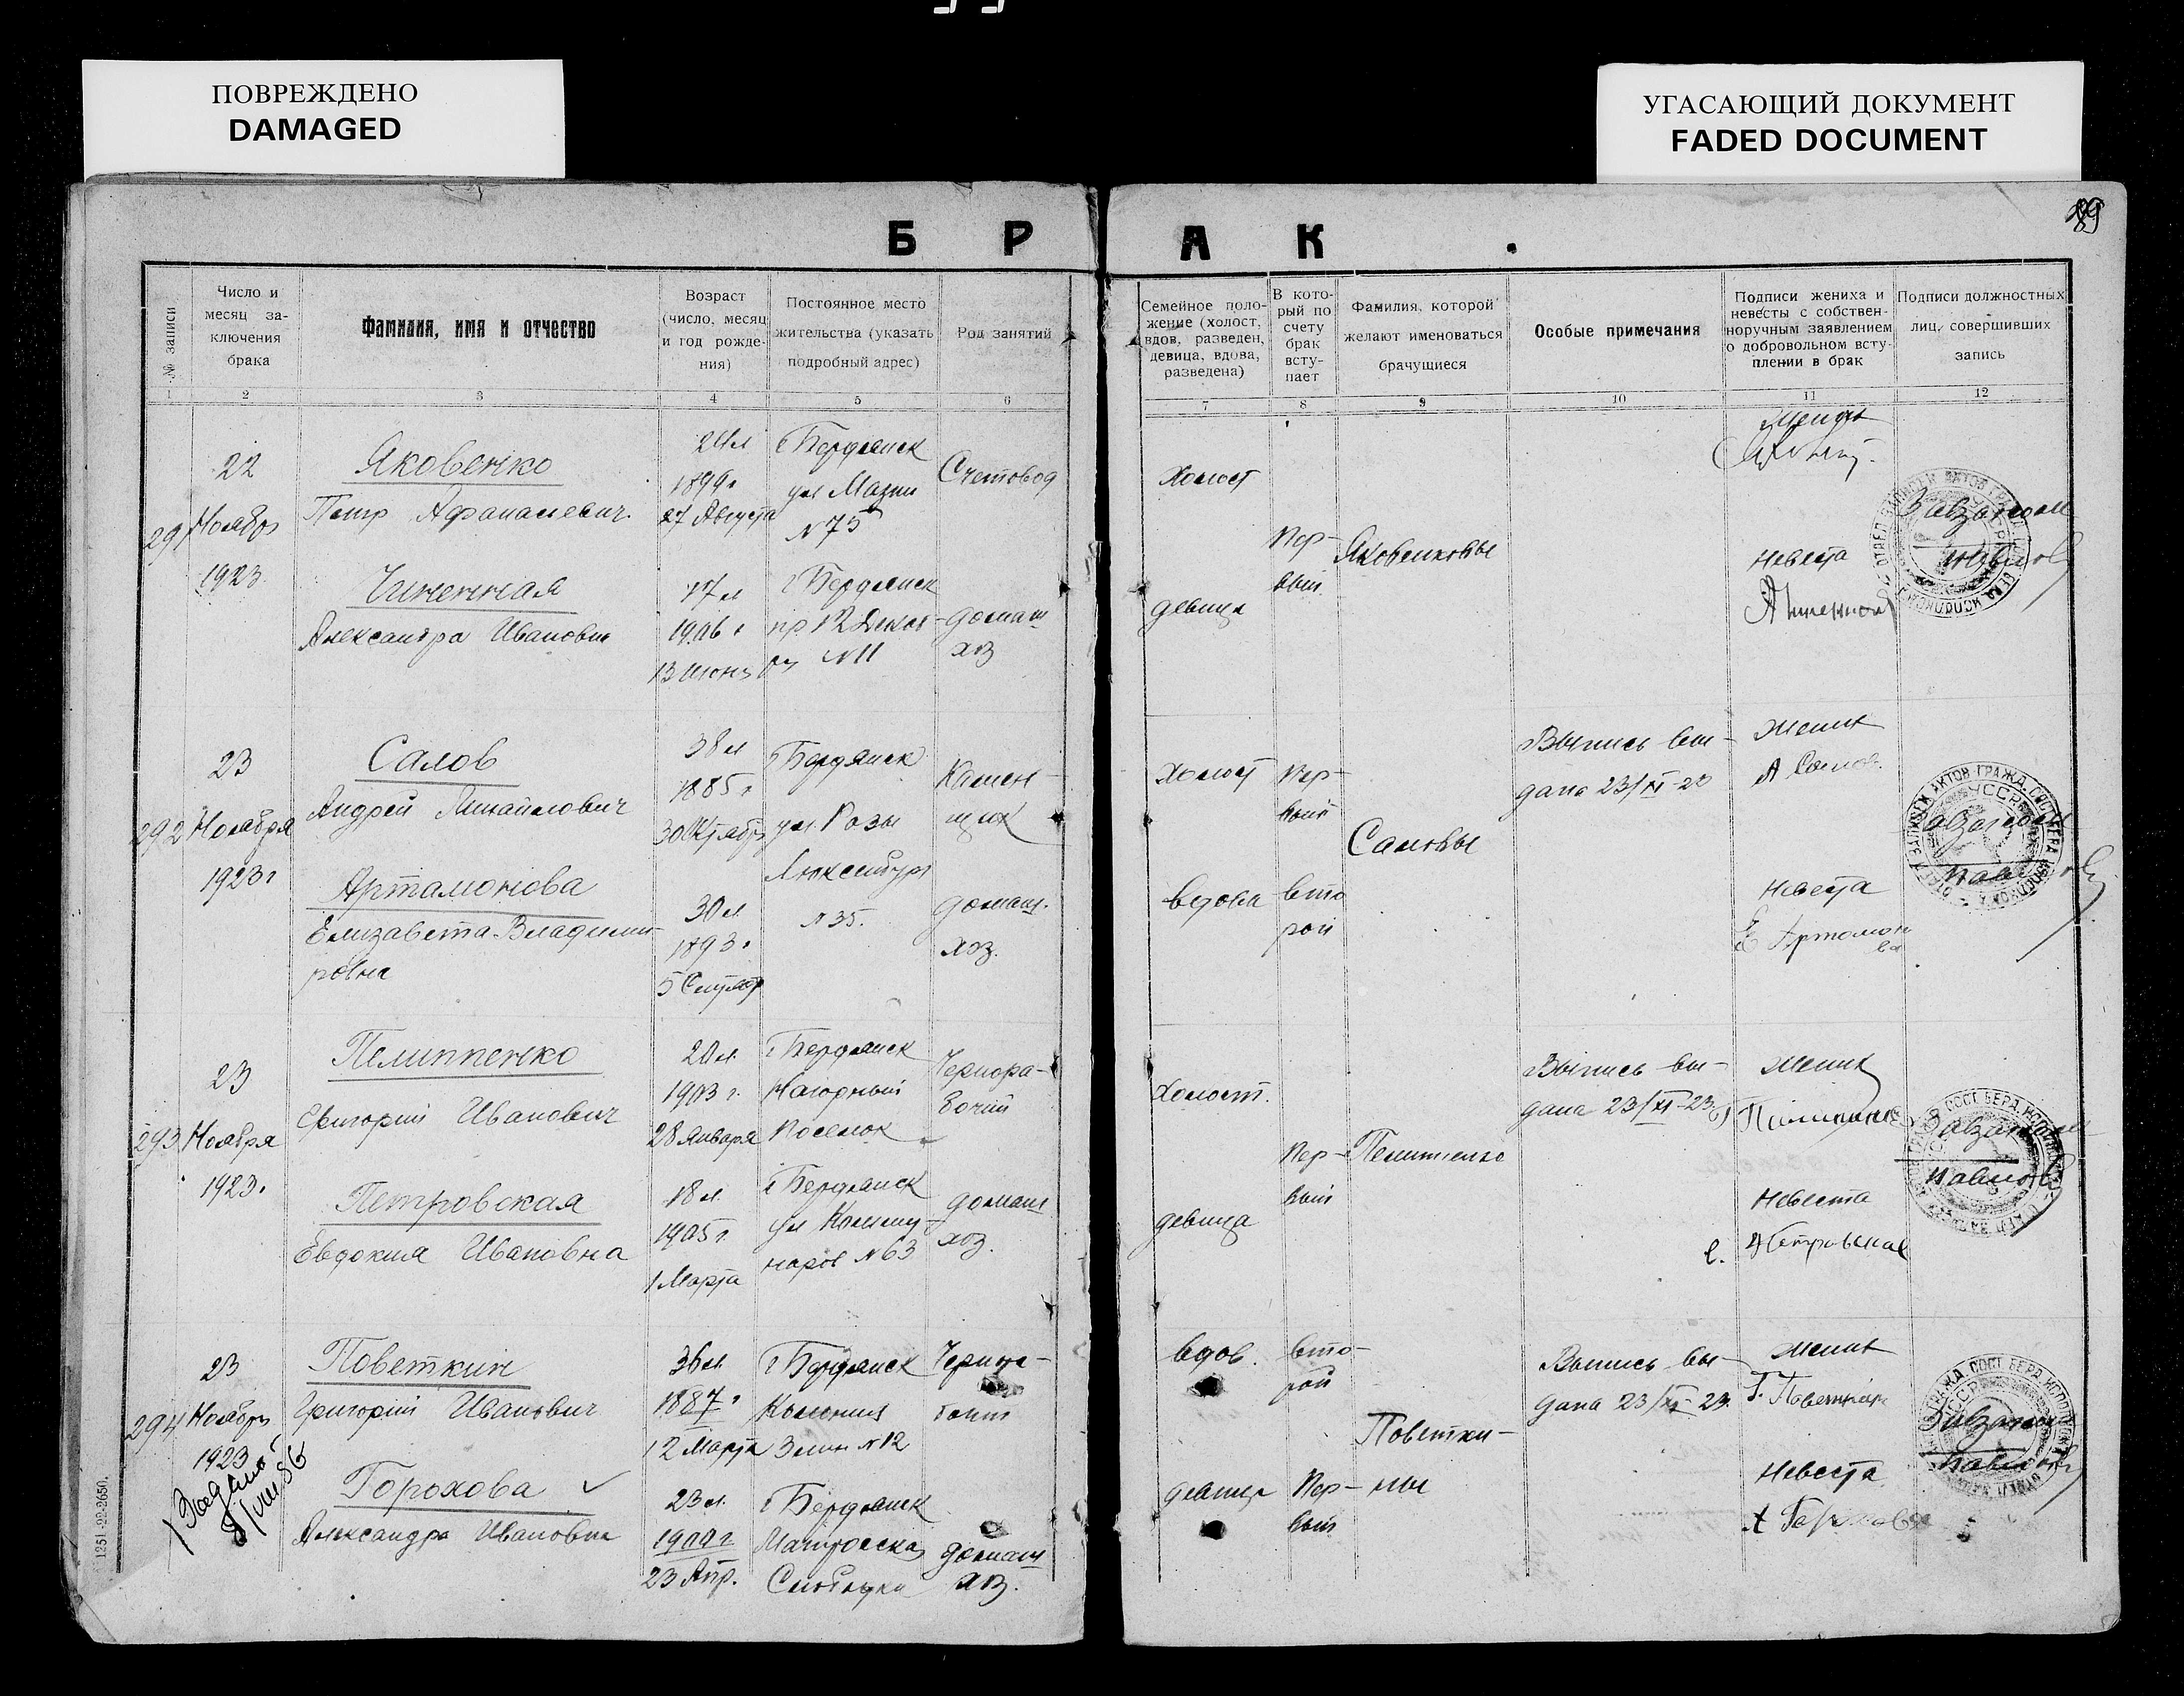 ПОВРЕЖДЕНО
DAMAGED
УГАСАЮЩИЙ ДОКУМЕНТ
FADED DOCUMENT
89
Б Р А К .
№ записи
Число и месяц заключения брака
Фамилия, имя и отчество
Возраст (число, месяц и год рождения)
Постоянное место жительства (указать подробный адрес)
Род занятий
Семейное положение (холост, вдов, разведен, девица, вдова, разведена)
В который по счету брак вступает
Фамилия, которой желают именоваться брачущиеся
Особые примечания
Подписи жениха и невесты с собственноручным заявлением о добровольном вступлении в брак
Подписи должностных лиц, совершивших запись
1 2 3 4 5 6 7 8 9 10 11 12
291
22
Ноября
1923
Яковенко
Петр Афанасиевич.
24 л
1899 г
27 Августа
г Бердянск
ул Мазин
N 75
Счетовод
Холост
Пер-
вый
Яковенковы
Жених
Чиненная
Александра Ивановна
17 л
1906 г
13 Июня
г Бердянск
пр 12 Декаб-
ря N 11
домаш
хоз
девица
Невеста
Завзагсом
292
23
Ноября
1923 г
Салов
Андрей Михайлович
38 л
1885 г
30 Октября
г Бердянск
ул Розы
Люксембург
N 35.
Камен-
щик
Холост
Пер-
вый
Саловы
Выпись вы-
дана 23/XI-23
Жених
А Салов.
Артамонова
Елизавета Владими-
ровна
30 л.
1893 г
5 Сентябр
домаш.
хоз.
вдова
вто
рой
Невеста
Е Артамон
ва
Завзагсом
293
23
Ноября
1923 г
Пелиппенко
Григорий Иванович
20 л.
1903 г.
28 Января
г Бердянск
Нагорный
Поселок
Чернора-
бочий
Холост.
Пер-
вый
Пелипенко
Выпись вы-
дана 23/XI-23
Жених
Петровская
Евдокия Ивановна
18 л.
1905 г.
1 Марта
г Бердянск
ул Комму-
наров N 63
домаш
хоз.
девица
Невеста
Е. Петровская
Завзагсом
294
23
Ноября
1923
Поветкин
Григорий Иванович
36 л.
1887 г
12 Марта
г Бердянск
Колония
N 12
вдов.
вто-
рой
Поветки-
ны
Выпись вы-
дана 23/XI-23.
Жених
Г. Поветкин
Горохова ✓
Александра Ивановна
23 л.
1900 г
23 Апр.
г Бердянск
Матросская
Слободка
домаш
хоз.
девица
Пер-
вый
Невеста
А Горохова
Завзагсом
1251-22-2650.